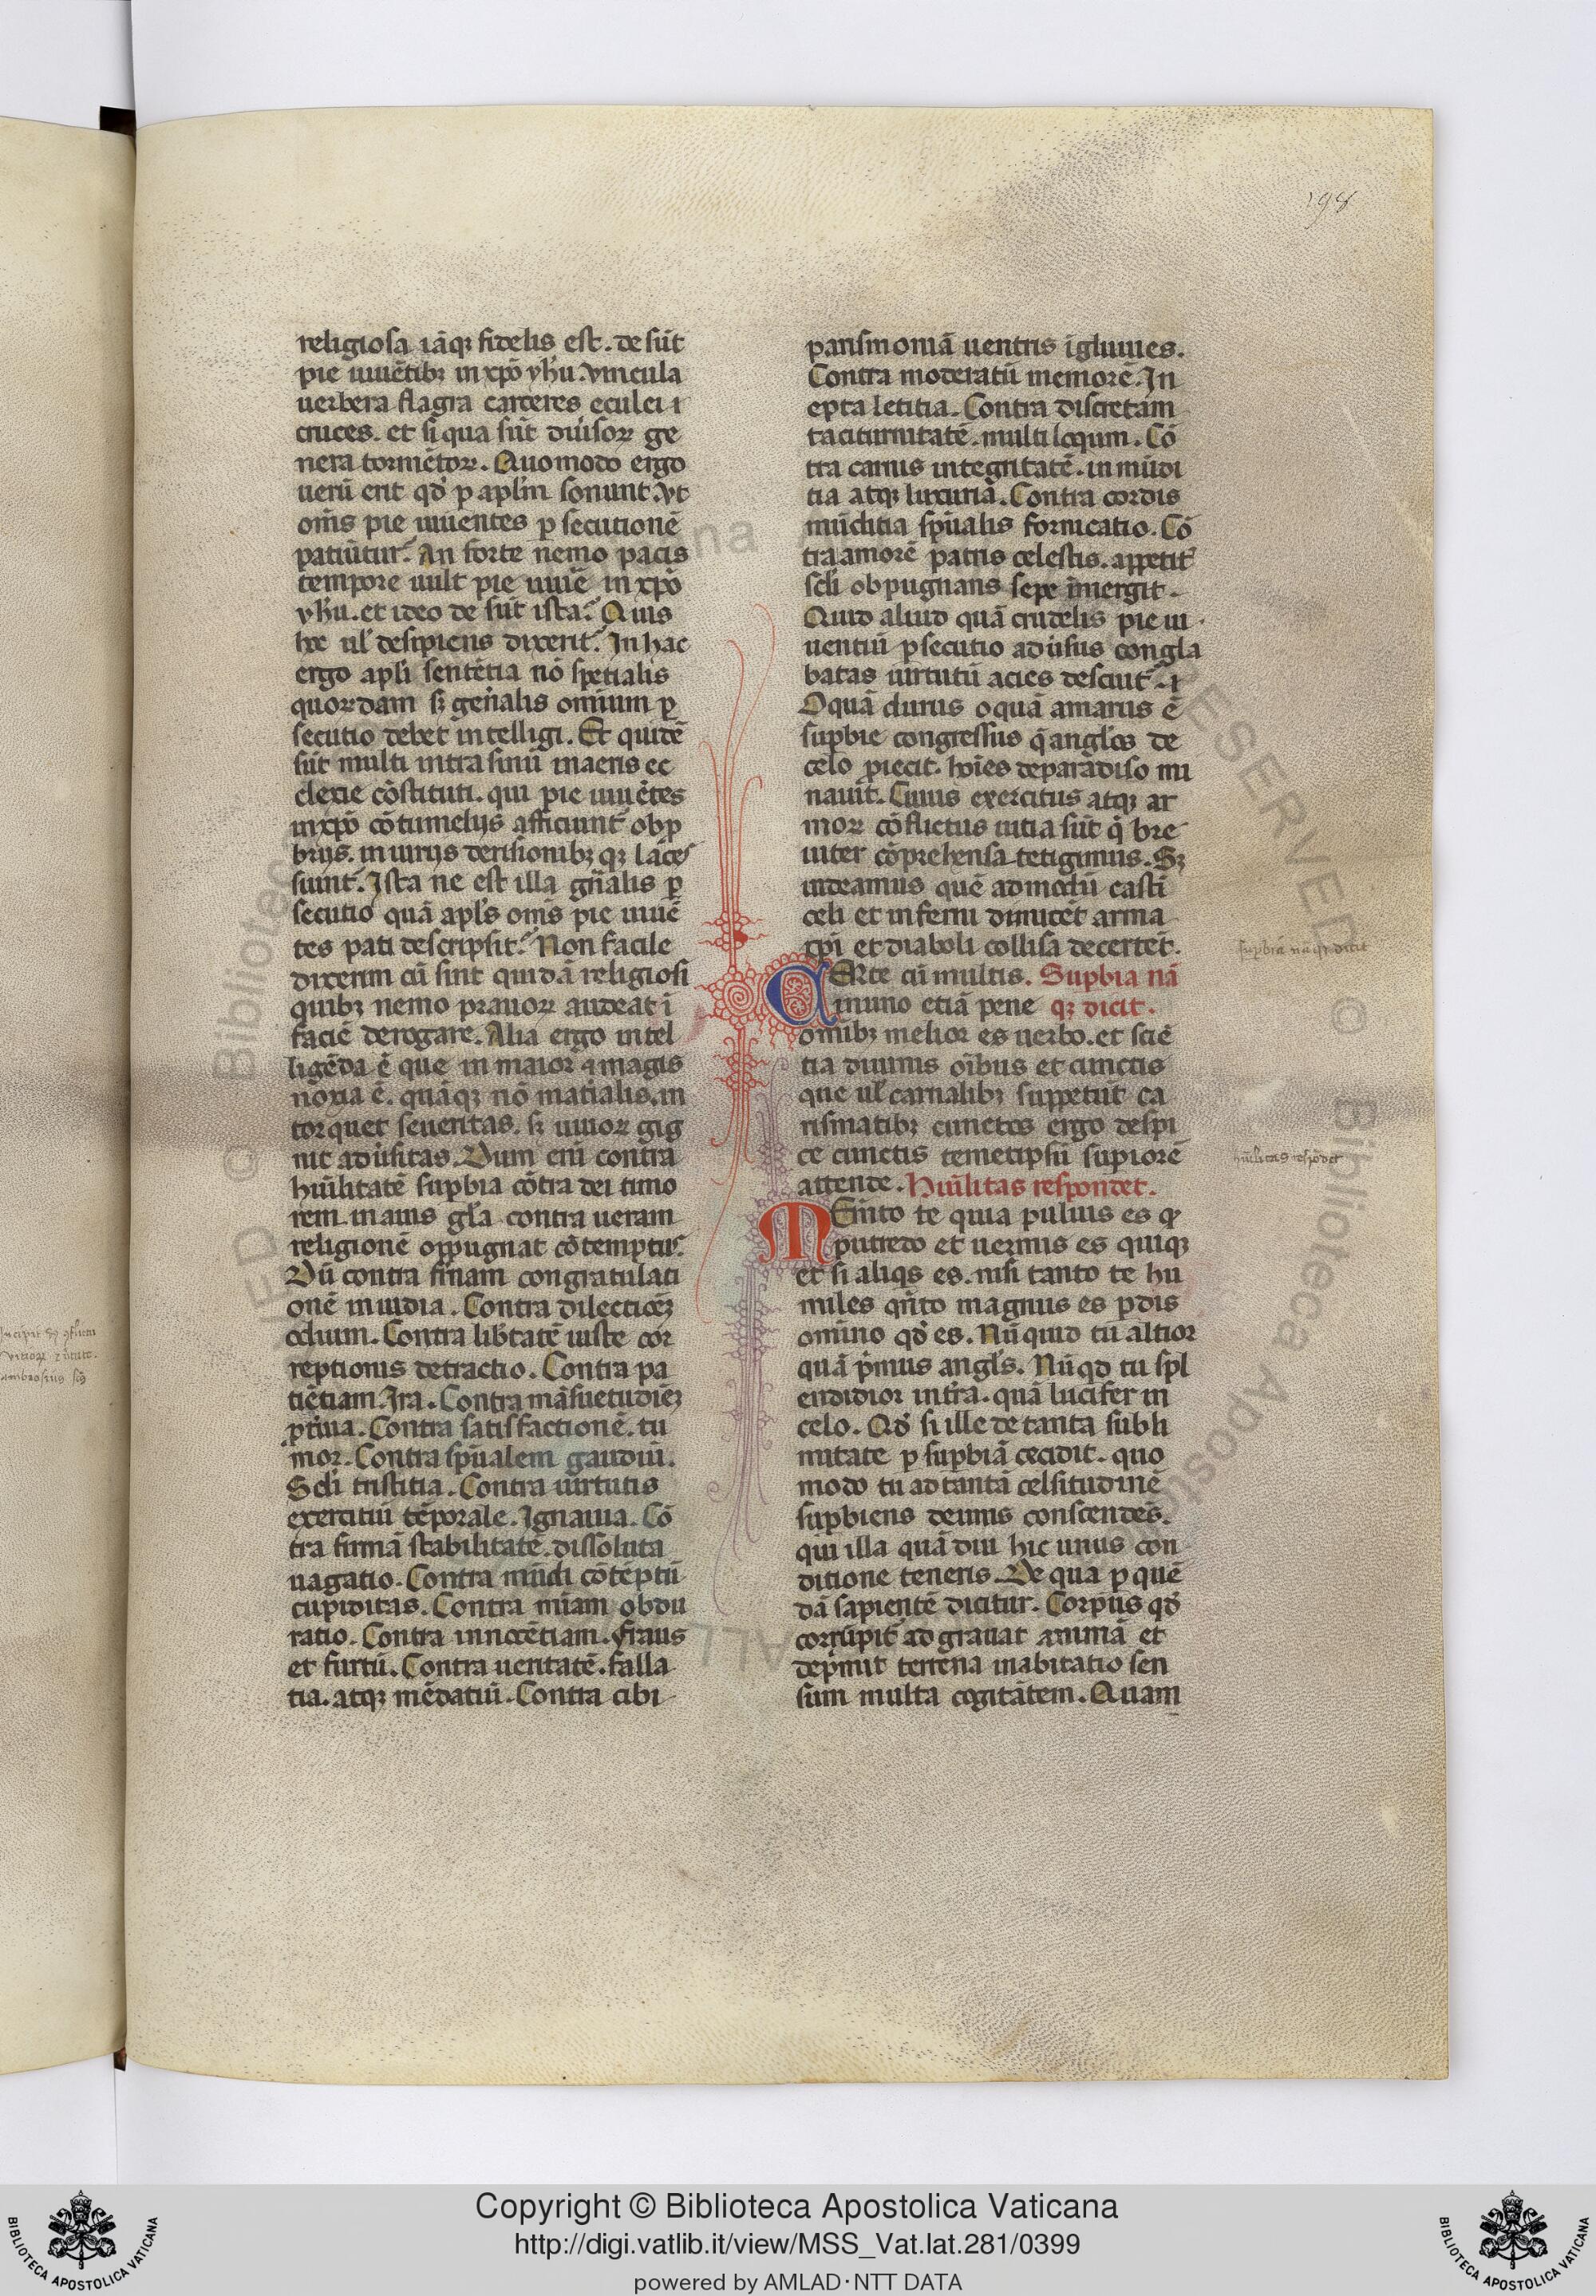 198
religiosa iāqꝫ fidelis est. de sūt
pie uiuētibꝫ in xp̄o yh̄u. vincula
uerbera flagra carceres eculei ⁊
cruces. et si qua sūt diu̓soꝝ ge
nera tormētoꝝ. Quomodo ergo
uerū erit qd̓ ꝑ apl̄m sonunt. vt
om̄s pie uiuentes ꝑsecutionē
patiūtur. An forte nemo pacis
tempore uult pie uiuē in xp̄o
yh̄u. et ideo de sūt ista. Quis
hec ul̓ desipiens dixerit. In hac
ergo apl̄i sentētia nō spetialis
quorꝫdam sꝫ gen̄alis omium ꝑ
secutio debet intelligi. Et quidē
sūt multi intra sinū maēris ec
clexie cōstituti. qui pie uiuētes
in xp̄o cōtumelijs afficiunt̓ obꝓ
brijs. iniurijs derisionibꝫ qꝫ laces
siunt̓. Ista ne est illa gn̄alis ꝑ
secutio quā apl̓s om̄s pie uiuē
tes pati descripsit. Non facile
dixerim cū sint quidā religiosi
quibꝫ nemo prauioꝝ audeat ī
faciē derogare. Alia ergo intel
ligēda ē que in maior ⁊ magis
noxia ē. quāqꝫ nō mat̓ialis. in
torquet seueritas. sꝫ uiuoꝝ gig
nit adu̓sitas. Dum eni contra
hūilitatē suꝑbia cōtra dei timo
rem inanis gl̄a contra ueram
religionē oppugnat cōtemptus̓.
Dū contra fr̄nam congratulati
onē inuidia. Contra dilectiōeꝫ
odium. Contra lib̓tatē iuste cor
reptionis detractio. Contra pa
tiētiam. Ira. Contra māsuetudiēꝫ
ꝓt̓uia. Contra satisfactionē. tu
mor. Contra spūalem gaudiū.
Scl̓i tristitia. Contra uirtutis
exercitiū tēporale. Ignauia. Cō
tra firmā stabilitatē. dissoluta
uagatio. Contra mūdi cōtēptū
cupiditas. Contra mīam obdu
ratio. Contra innocētiam. fraus
et furtū. Contra ueritatē. falla
tia. atqꝫ mēdatiū. Contra cibi
parismoniā uentris īgluuies.
Contra moderatū memorē. In
epta letitia. Contra discretam
taciturnitatē. multiloqum. Cō
tra carnis integritatē. inmūdi
tia atqꝫ luxuriā. Contra cordis
mūditia spūalis fornicatio. Cō
tra amorē patris celestis. appetit̓
scl̓i obpugnans sepe īmergit.
Quid aliud quā crudelis pie ui
uentiū ꝑsecutio adu̓sus congla
batas uirtutū acies desciuit̓. ⁊
O quā durus o quā amarus ē
suꝑbie congressus q̄ angl̓os de
celo ꝓiecit. hoīes de paradiso mi
nauit. Cuius exercitus atqꝫ ar
moꝝ cōflictus uitia sūt q̄ bre
uiter cōprehensa tetigimus. Sꝫ
uideamus quē admodū castī
celi et inferni dimicēt arma
xp̄i et diaboli collisa decertēt.
CErte cū multis. Suꝑbia nā
inuno etiā pene qꝫ dicit.
omībꝫ melior es uerbo. et sciē
tia diuinis oībus et cunctis
que ul̓ carnalibꝫ suppetūt ca
rismatibꝫ cunctos ergo despi
ce cunctis temetipsū suꝑiorē
attende. Hūilitas respondet.
MEm̄to te quia puluis es qꝫ
putredo et uermis es quiqꝫ
et si aliqs es. nisi tanto te hu
milies qn̄to magnus es ꝑdis
omino qd̓ es. Nūquid tu altior
quā pͥmus angl̓s. Nūqd tu spl
endidior in tr̄a. quā lucifer in
celo. Qd̓ si ille de tanta subli
mitate ꝑ suꝑbiā cecidit. quo
modo tu ad tantā celsitudinē
suꝑbiens de imis conscendes.
qui illa quā diu hic uiuis con
ditione teneris. De qua ꝑ quē
dā sapientē dicitur. Corpus qd̓
corrūpit̓ ad grauat animā et
depͥmit terrena inabitatio sen
sum multa cogitātem. Quam
suꝑbia nā qꝫ dicit
hūilitas respōdet
Copyright © Biblioteca Apostolica Vaticana
http://digi.vatlib.it/view/MSS_Vat.lat.281/0399
powered by AMLAD·NTT DATA
BIBLIOTECA APOSTOLICA VATICANA
BIBLIOTECA APOSTOLICA VATICANA